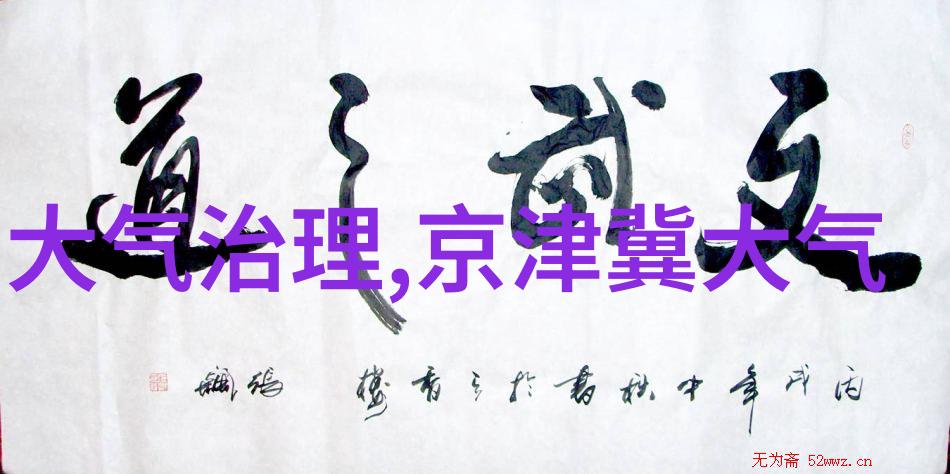 文武之道
大气治理,京津冀大气
丙戌年中秋书于之香楼
无为斋 52wwz.cn